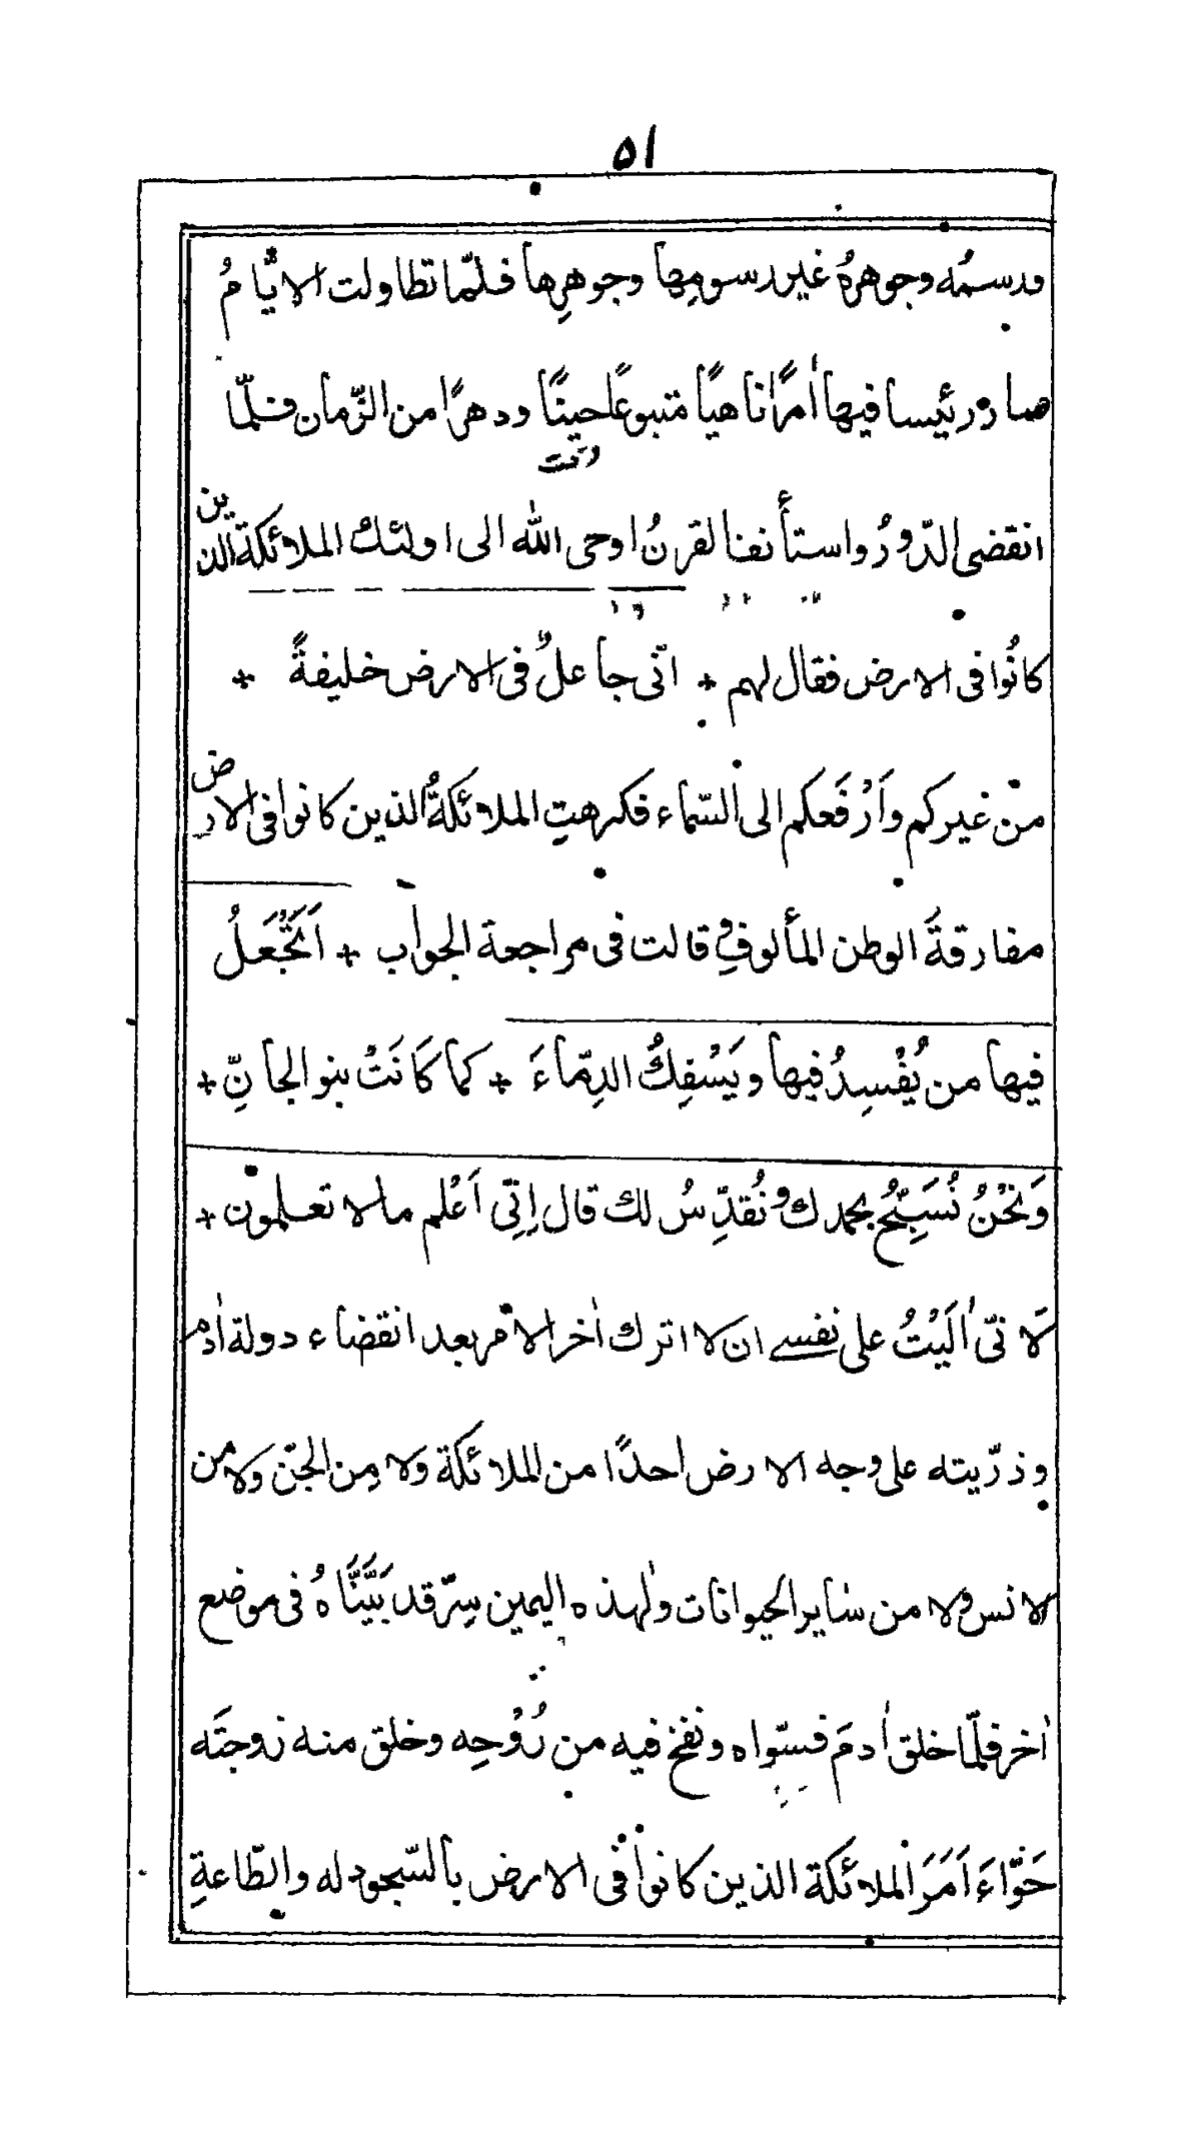 ٥١
ورسمُه وجوهرهُ غير رسومِها وجوهرِها فلمّا تطاولت الايّامُ
صار رئيسا فيها اٰمرًا ناهيًا متبوعًا حينًا ودهرًا من الزّمان فلمّا
انقضى الدّورُ واستأنف القرنُ اوحى الله الى اولئك الملائكة الذين
كانُوا فى الارض فقال لهم + انّى جاعلٌ فى الارض خليفةً +
منْ غيركم وَاَرْفَعكم الى السّماء فكرهتِ الملائكةُ الذين كانوا فى الارض
مفارقةَ الوطن المألوفِ وقالت فى مراجعة الجواب + اَتَجْعَلُ
فيها من يُفْسِدُ فيها ويَسْفِكُ الدِمّاءَ + كما كَانَتْ بنو الجانِّ +
وَنَحْنُ نُسَبِّحُ بحمدك ونُقدِّسُ لك قال اِنّى اَعْلم مالا تعلمون +
لَانّى اٰلَيْتُ على نفسے ان لا اترك اٰخر الامر بعد انقضاء دولة اٰدم
وذرّيته على وجه الارض احدًا من الملائكة ولا مِن الجنّ ولا من
الانس ولا من سٰاير الحيوانات ولٰهذه اليمين سِرّ قد بَيَّنَّاهُ فى موضع
اٰخر فلمّا خلق اٰدمَ فسوّاه ونفخ فيه من رُوْحِه وخلق منه زوجتَه
حَوّاءَ اَمَرَ الملائكة الذين كانوا فى الارض بالسّجود له والطّاعةِ